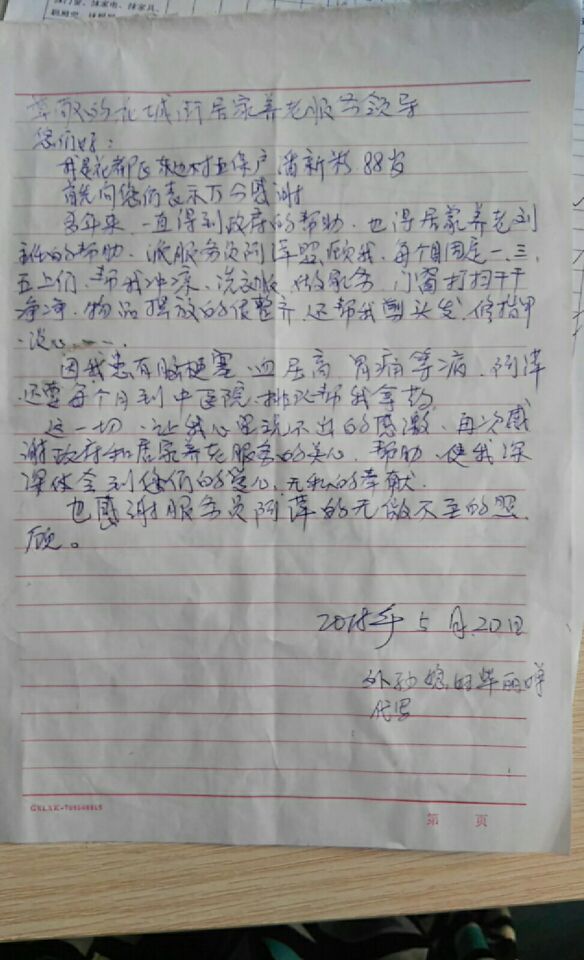 抹门窗、抹家电、抹家具、
尊敬的花城街居家养老服务领导
您们好：
我是花都区东边村五保户 潘新彩 88岁
首先向您们表示万分感谢
多年来 一直得到政府的帮助、也得居家养老刘
主任的帮助、派服务员阿萍照顾我、每个周一、三、
五上们、帮我冲凉、洗衣服、做家务、门窗打扫干干
净净、物品摆放的很整齐、还帮我剪头发、修指甲
、谈心……
因我患有脑梗塞、血压高、胃痛等病、阿萍
还要每个月到中医院、排队帮我拿药
这一切、让我心里说不出的感激、再次感
谢政府和居家养老服务的关心、帮助、使我深
深体会到您们的爱心、无私的奉献.
也感谢服务员阿萍的无微不至的照
顾。
2018年 5月20日
外孙媳
代写
第 页